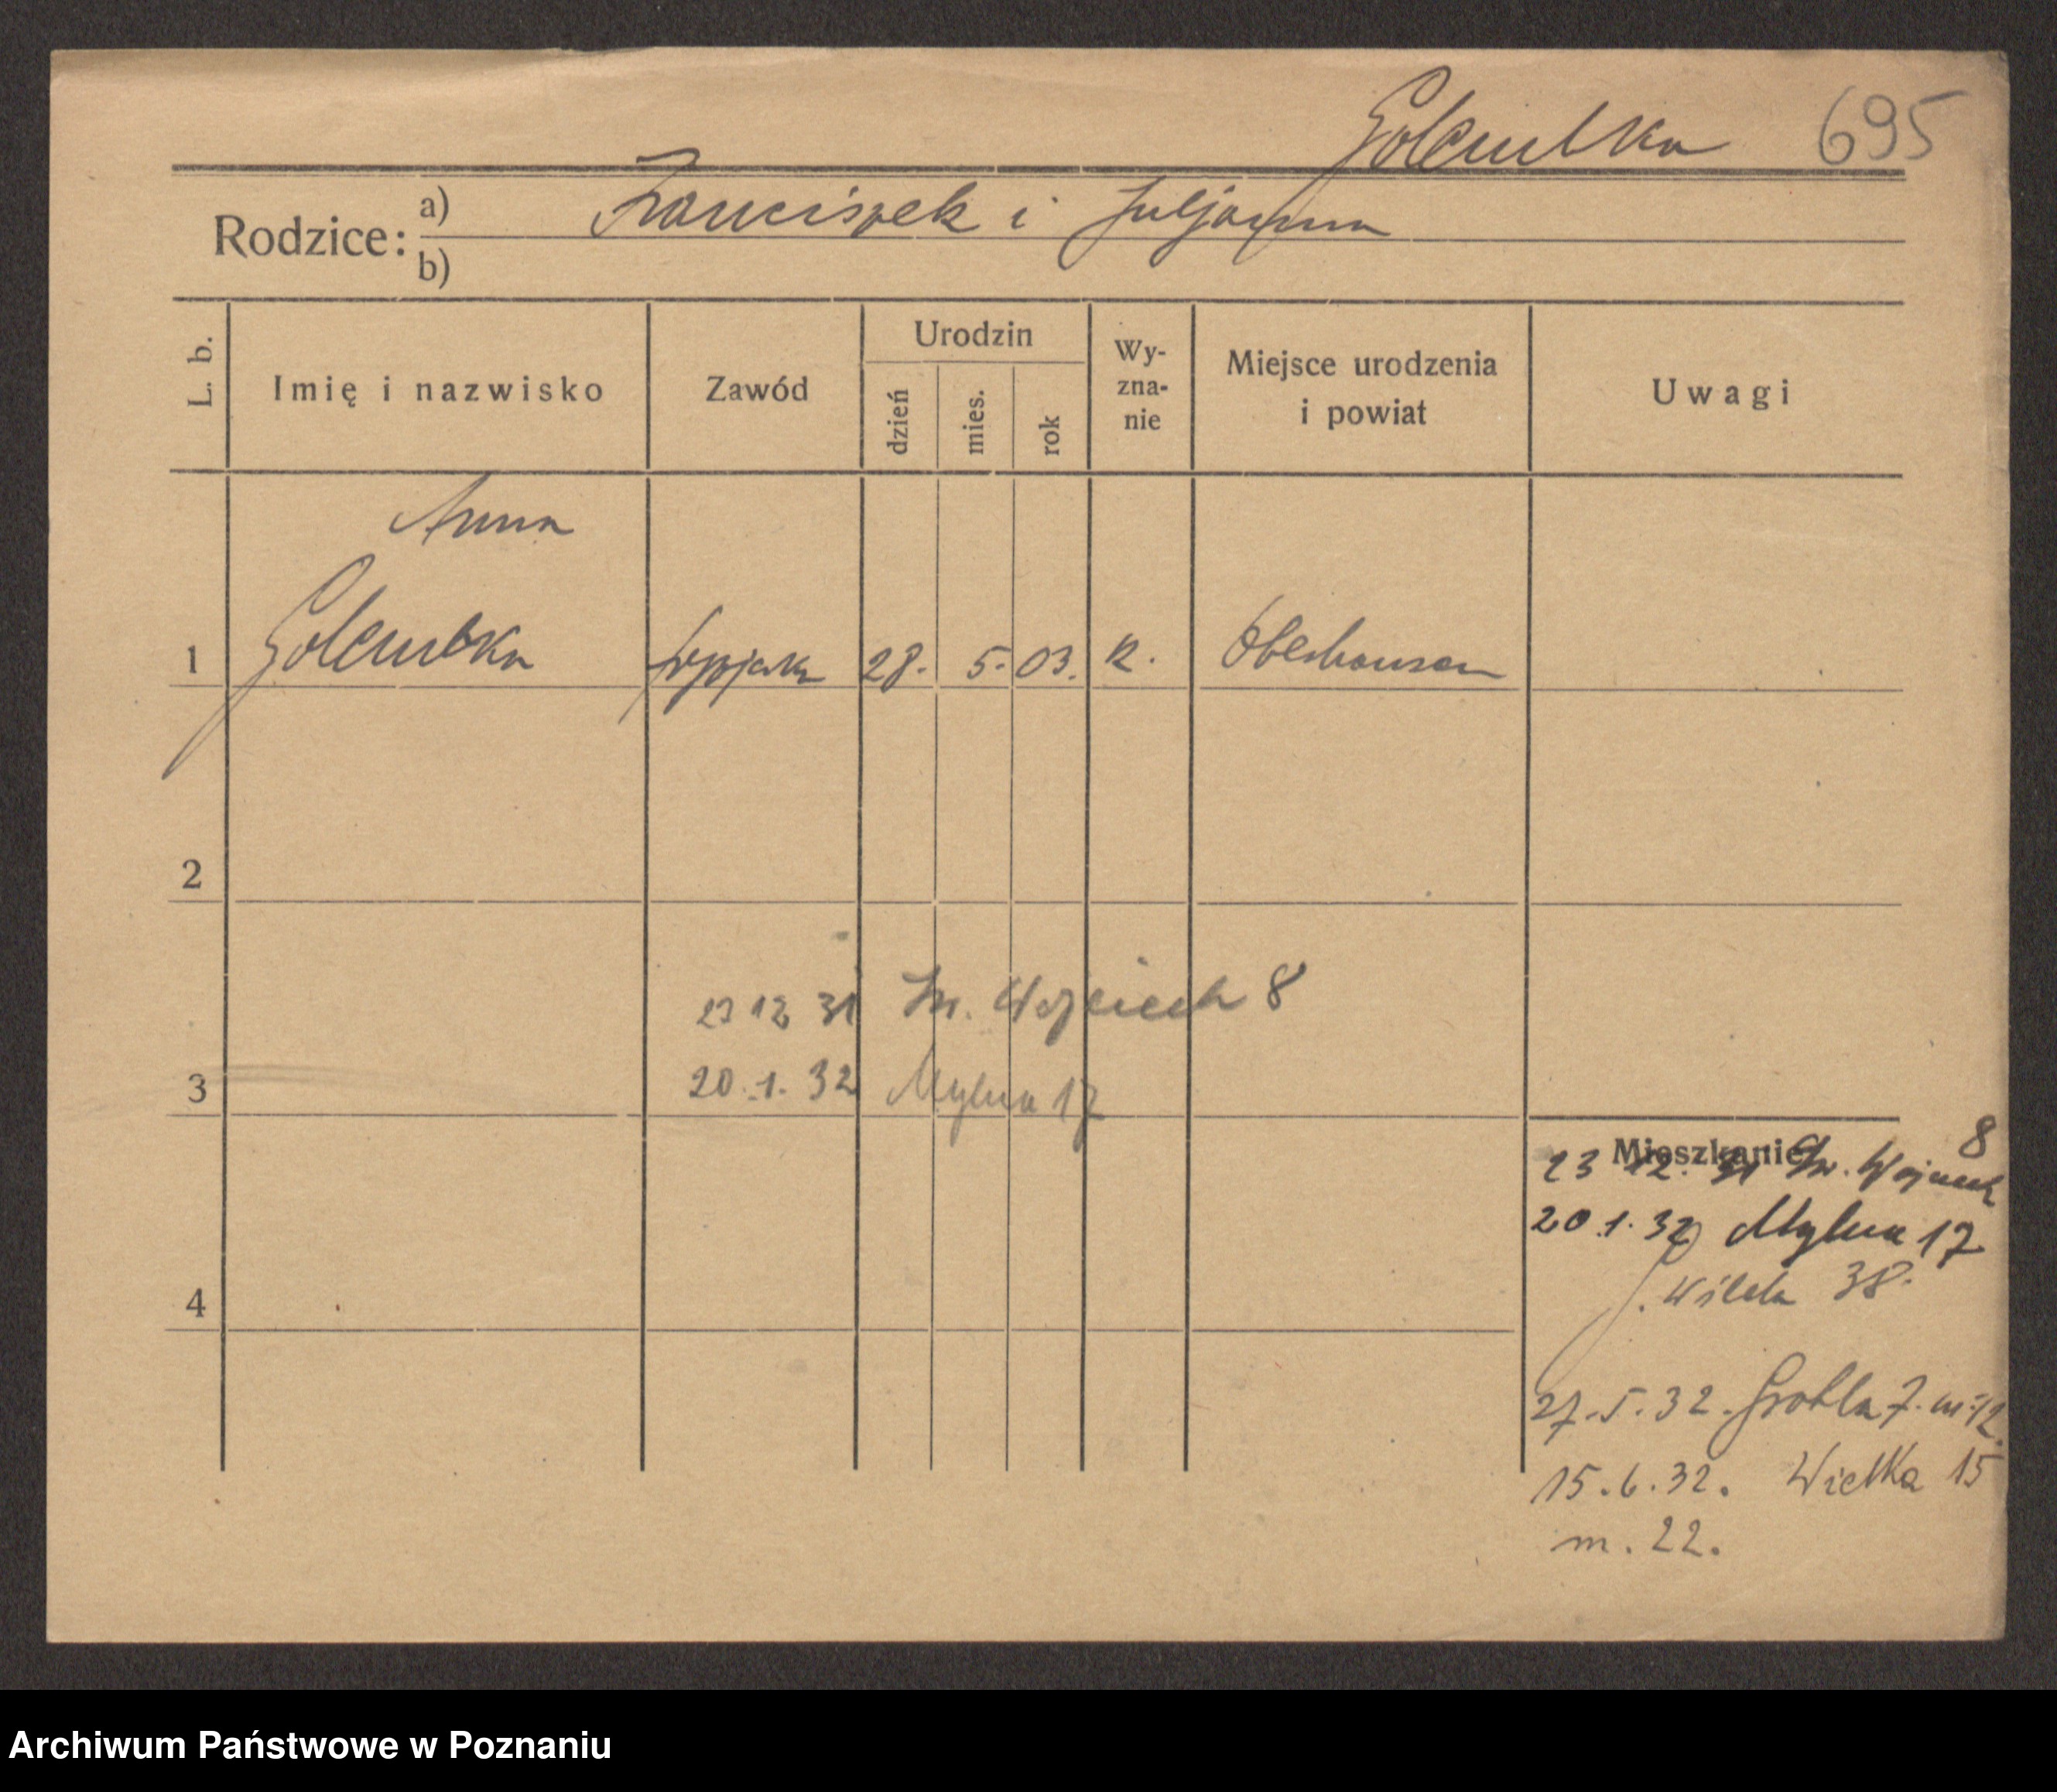 Golembka 695
Rodzice: a) Franciszek i Juljanna
b)
L. b. Imię i nazwisko Zawód Urodzin dzień mies. rok Wy-zna-nie Miejsce urodzenia i powiat Uwagi
Anna
1 Golembka 28. 5. 03. k. Oberhausen
2
23 12 31 Św. Wojciech 8
3 20. 1. 32 Mylna 17
Mieszkanie
23 12. 31 Św. Wojciech 8
20. 1. 32 Mylna 17
Wilda 38.
4
27. 5. 32. Grobla 7. m. 12.
15. 6. 32. Wielka 15
m. 22.
Archiwum Państwowe w Poznaniu